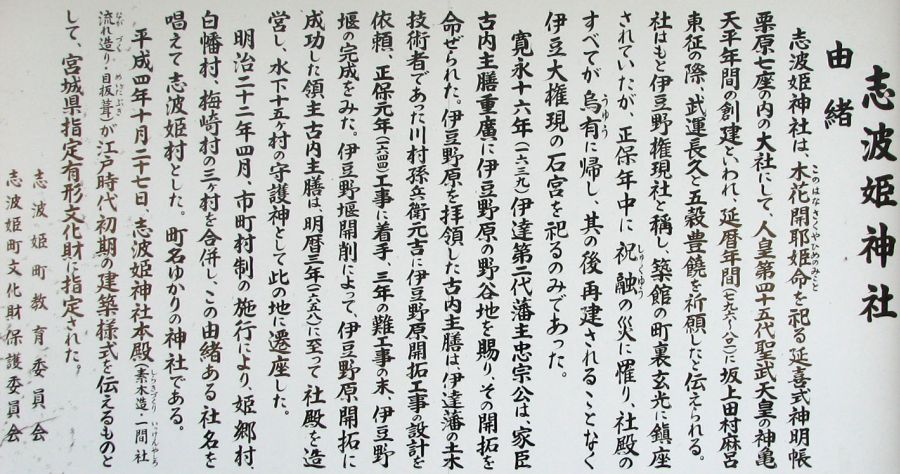 志波姫神社
由緒
志波姫神社は、木花開耶姫命を祀る延喜式神明帳
このはなさくやひめのみこと
栗原七座の内の大社にして、人皇第四十五代聖武天皇の神亀
天平年間の創建といわれ、延暦年間(七九六〜八〇二)に坂上田村麻呂
東征の際、武運長久と五穀豊饒を祈願したと伝えられる。
社はもと伊豆野権現社と称し、築館の町裏玄光に鎮座
されていたが、正保年中に祝融の災に罹り、社殿の
しゅくゆう
すべてが烏有に帰し、其の後再建されることなく
うゆう
伊豆大権現の石宮を祀るのみであった。
寛永十六年(一六三九)伊達第二代藩主忠宗公は、家臣
古内主膳重廣に伊豆野原の野谷地を賜り、その開拓を
命ぜられた。伊豆野原を拝領した古内主膳は、伊達藩の土木
技術者であった川村孫兵衛元吉に伊豆野原開拓工事の設計を
依頼、正保元年(一六四四)工事に着手、三年の難工事の末、伊豆野
堰の完成をみた。伊豆野堰開削によって、伊豆野原開拓に
成功した領主古内主膳は明暦三年(一六五八)に至って社殿を造
営し、水下十五ヶ村の守護神として此の地に遷座した。
明治二十二年四月、市町村制の施行により、姫郷村、
白幡村、梅崎村の三ヶ村を合併し、この由緒ある社名を
唱えて志波姫村とした。町名ゆかりの神社である。
平成四年十月二十七日、志波姫神社本殿(素木造・一間社
しらきづくり いっけんやしろ
流れ造り・目板葺)が江戸時代初期の建築様式を伝えるものと
ながれづくり めいたぶき
して、宮城県指定有形文化財に指定された。
志波姫町教育委員会
志波姫町文化財保護委員会